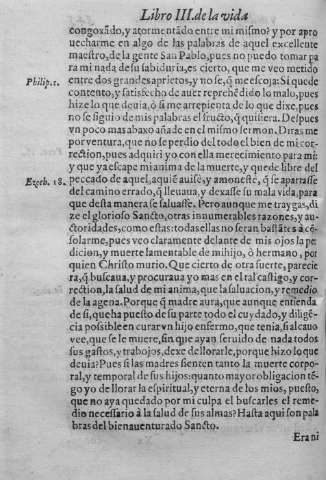 Libro III. de la vida
congoxado, y atormentado entre mi mismo? y por apro
uecharme en algo de las palabras de aquel excellente
maestro, de la gente San Pablo, pues no puedo tomar pa
ra mi nada de su sabiduria, es cierto, que me veo metido
Philip. 1.
entre dos grandes aprietos, y no se, q̃ me escoja: Si quede
contento, y satisfecho de auer reprehẽdido lo malo, pues
hize lo que deuia, ò si me arrepienta de lo que dixe, pues
no se siguio de mis palabras el fructo, q̃ quisiera. Despues
vn poco mas abaxo añade en el mismo sermon. Diras me
por ventura, que no se perdio del todo el bien de mi cor-
rection, pues adquiri yo con ella merecimiento para mi:
y que ya escape mi anima de la muerte, y quede libre del
Ezech. 18.
peccado de aquel, a quiẽ auisè, y amonestè, q̃ se apartasse
del camino errado, q̃ lleuaua, y dexasse su mala vida, para
que desta manera se saluasse. Pero aunque me traygas, di
ze el glorioso Sancto, otras innumerables razones, y au-
ctoridades, como estas: todas ellas no seran bastãtes à cõ-
solarme, pues veo claramente delante de mis ojos la per
dicion, y muerte lamentable de mi hijo, ò hermano, por
quien Christo murio. Que cierto de otra suerte, parecie
ra, q̃ buscaua, y procuraua yo mas en el tal castigo, y cor-
rection, la salud de mi anima, que la saluacion, y remedio
de la agena. Porque q̃ madre aura, que aunque entienda
de si, que ha puesto de su parte todo el cuydado, y diligẽ-
cia possible en curar vn hijo enfermo, que tenia, si al cauo
vee, que se le muere, sin que ayan seruido de nada todos
sus gastos, y trabajos, dexe de llorarle, porque hizo lo que
deuia? Pues si las madres sienten tanto la muerte corpo-
ral, y temporal de sus hijos: quanto mayor obligacion tẽ-
go yo de llorar la espiritual, y eterna de los mios, puesto,
que no aya quedado por mi culpa el buscarles el reme-
dio necessario à la salud de sus almas? Hasta aqui son pala
bras del bienauenturado Sancto.
Era ni